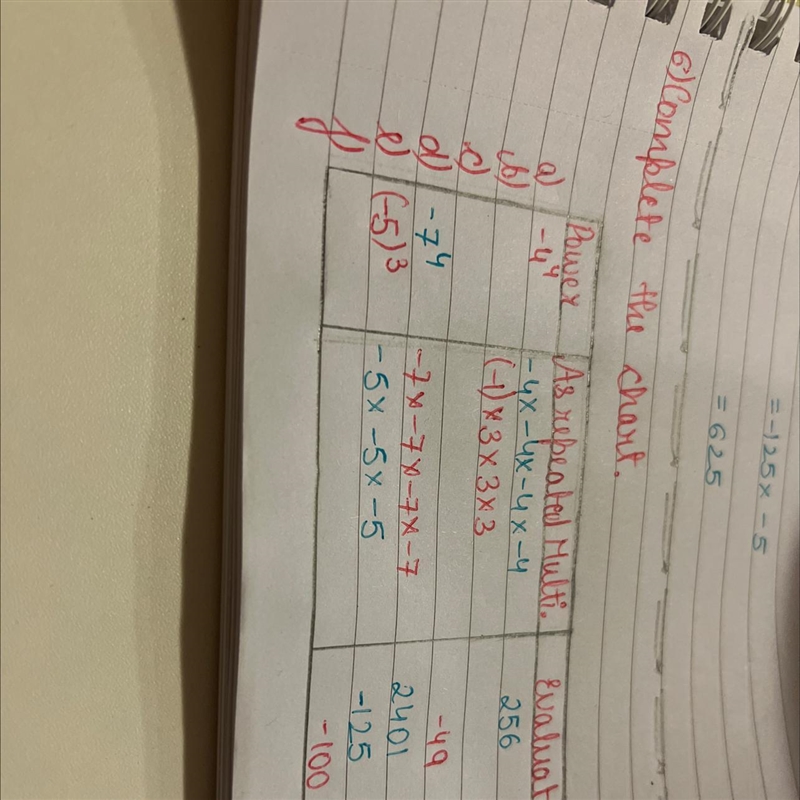 =-125x-5
=625
6) Complete the chart.
Power As repeated Multi. Evaluat
a) -4⁴ -4x-4x-4x-4 256
b) (-1)x3x3x3
c) -49
d) -7⁴ -7x-7x-7x-7 2401
e) (-5)³ -5x-5x-5 -125
f) -100